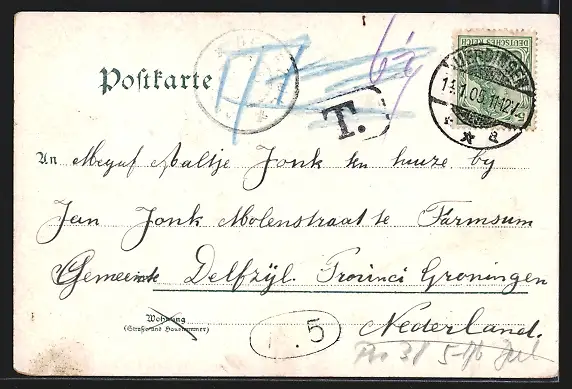 DEUTSCHES REICH
Postkarte
UERDINGEN
T.
An Mejuf Aaltje Jonk ten huize by
Jan Jonk Molenstraat te Farmsum
Gemeente Delfzijl. Provinci Groningen
Wohnung
(Straße und Hausnummer)
.5
Nederland.